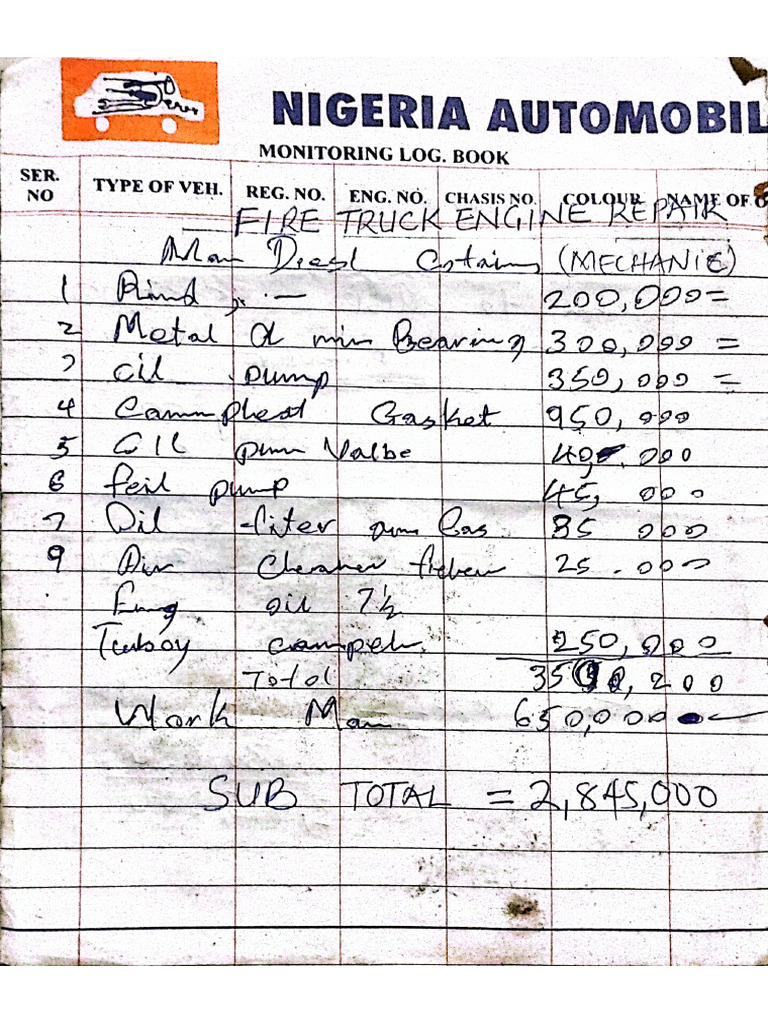 NIGERIA AUTOMOBIL
MONITORING LOG. BOOK
SER. NO TYPE OF VEH. REG. NO. ENG. NO. CHASIS NO. COLOUR NAME OF O
FIRE TRUCK ENGINE REPAIR
Man Diesl (MECHANIC)
1 200,000=
2 Metal min Bearing 300,000 =
3 Oil pump 350,000 =
4 Gasket 950,000
5 Oil pum Valbe 40,000
6 feil pump 45,000
7 Oil fliter 85 000
9 Air 25.000
Eng oil 7½
Tuboy 250,000
Total
Work Man 650,000
SUB TOTAL = 2,845,000